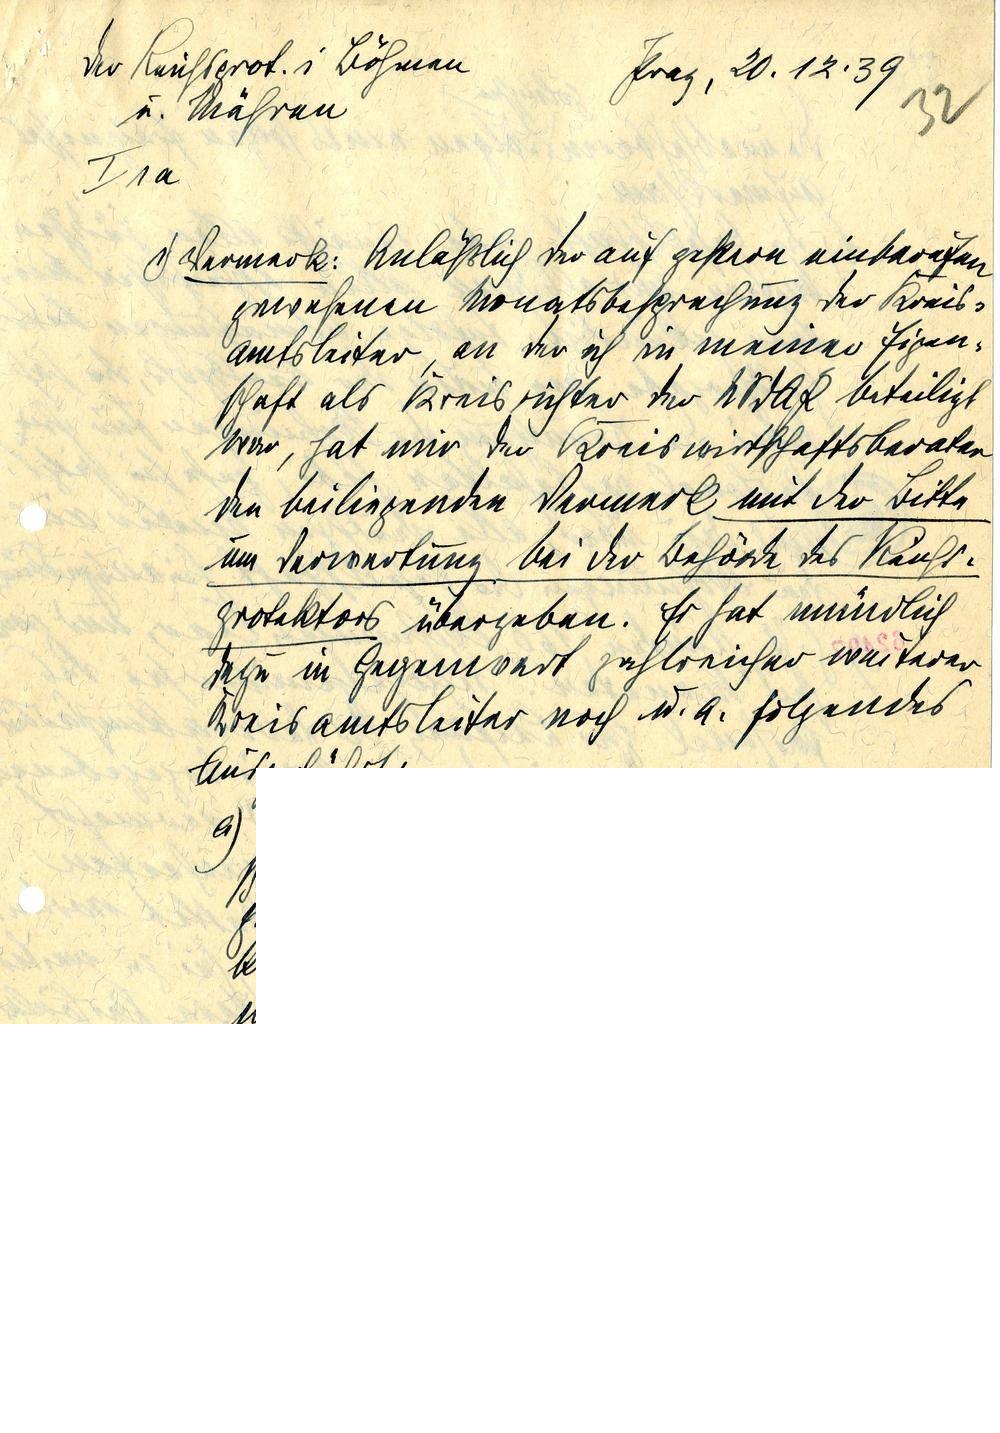 Der Reichsprot. i Böhmen
u. Mähren
Prag, 20.12.39
32
I 1a
1) Vermerk: Anläßlich der auf gestern einberufen
gewesenen Monatsbesprechung der Kreis-
amtsleiter, an der ich in meiner Eigen-
schaft als Kreisrichter der NSDAP beteiligt
war, hat mir der Kreiswirtschaftsberater
den beiliegenden Vermerk mit der Bitte
um Verwertung bei der Behörde des Reichs-
protektors übergeben. Er hat mündlich
dazu in Gegenwart zahlreicher weiterer
Kreisamtsleiter noch u. a. folgendes
a)